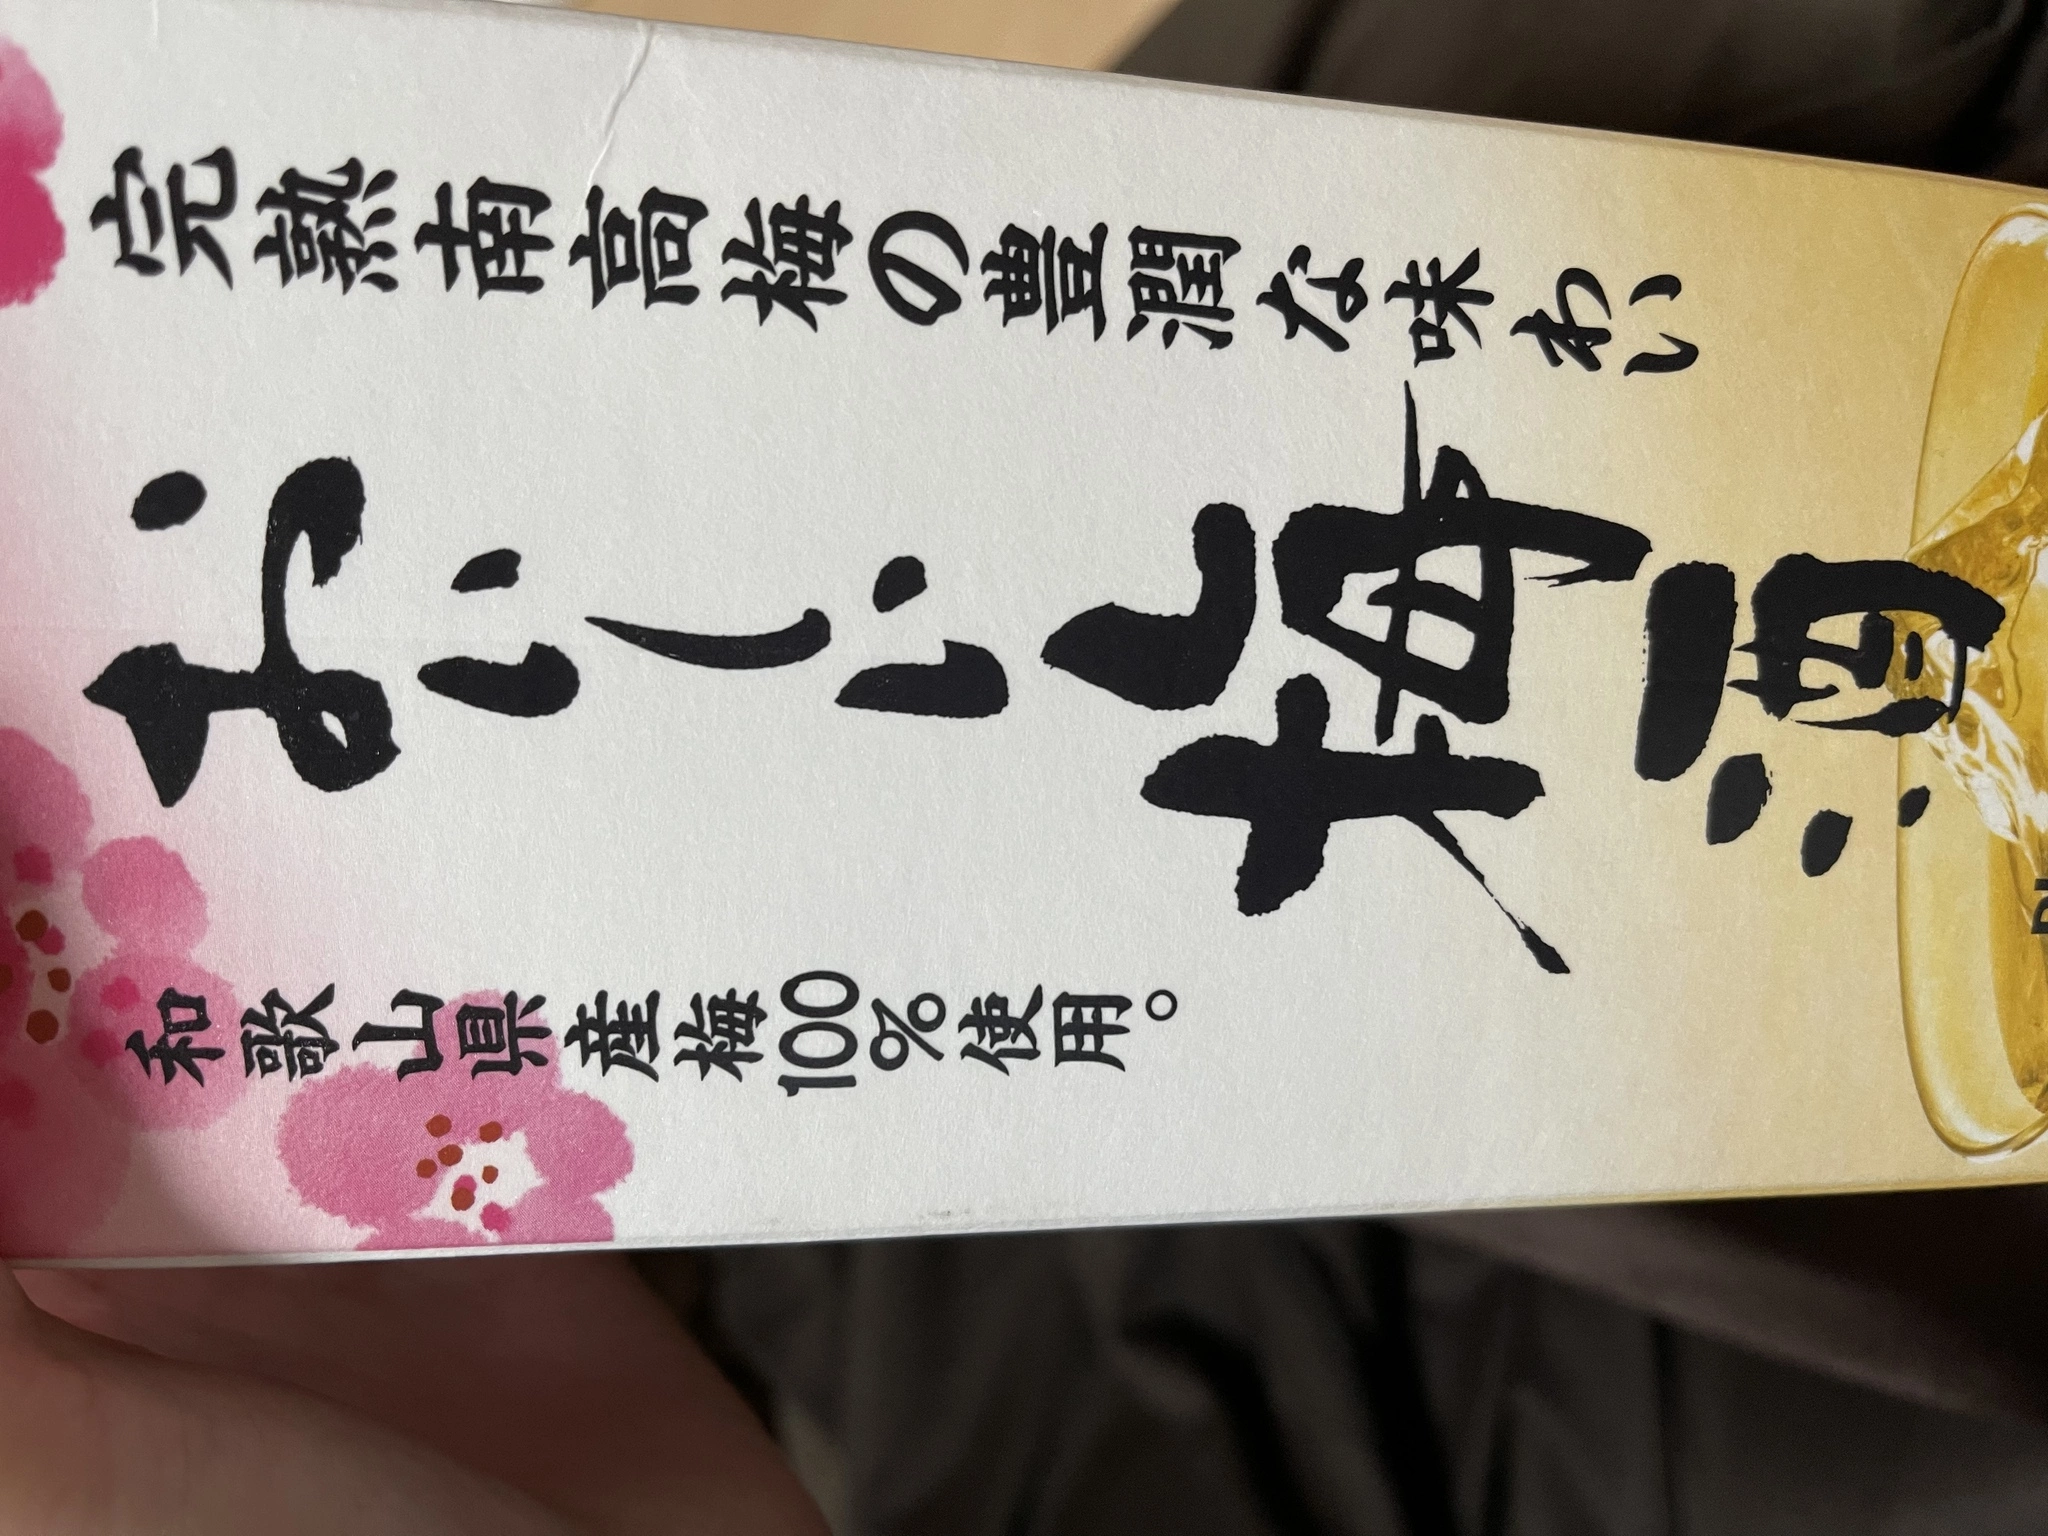 完熟南高梅の豊潤な味わい
おいしい梅酒
和歌山県産梅100%使用。